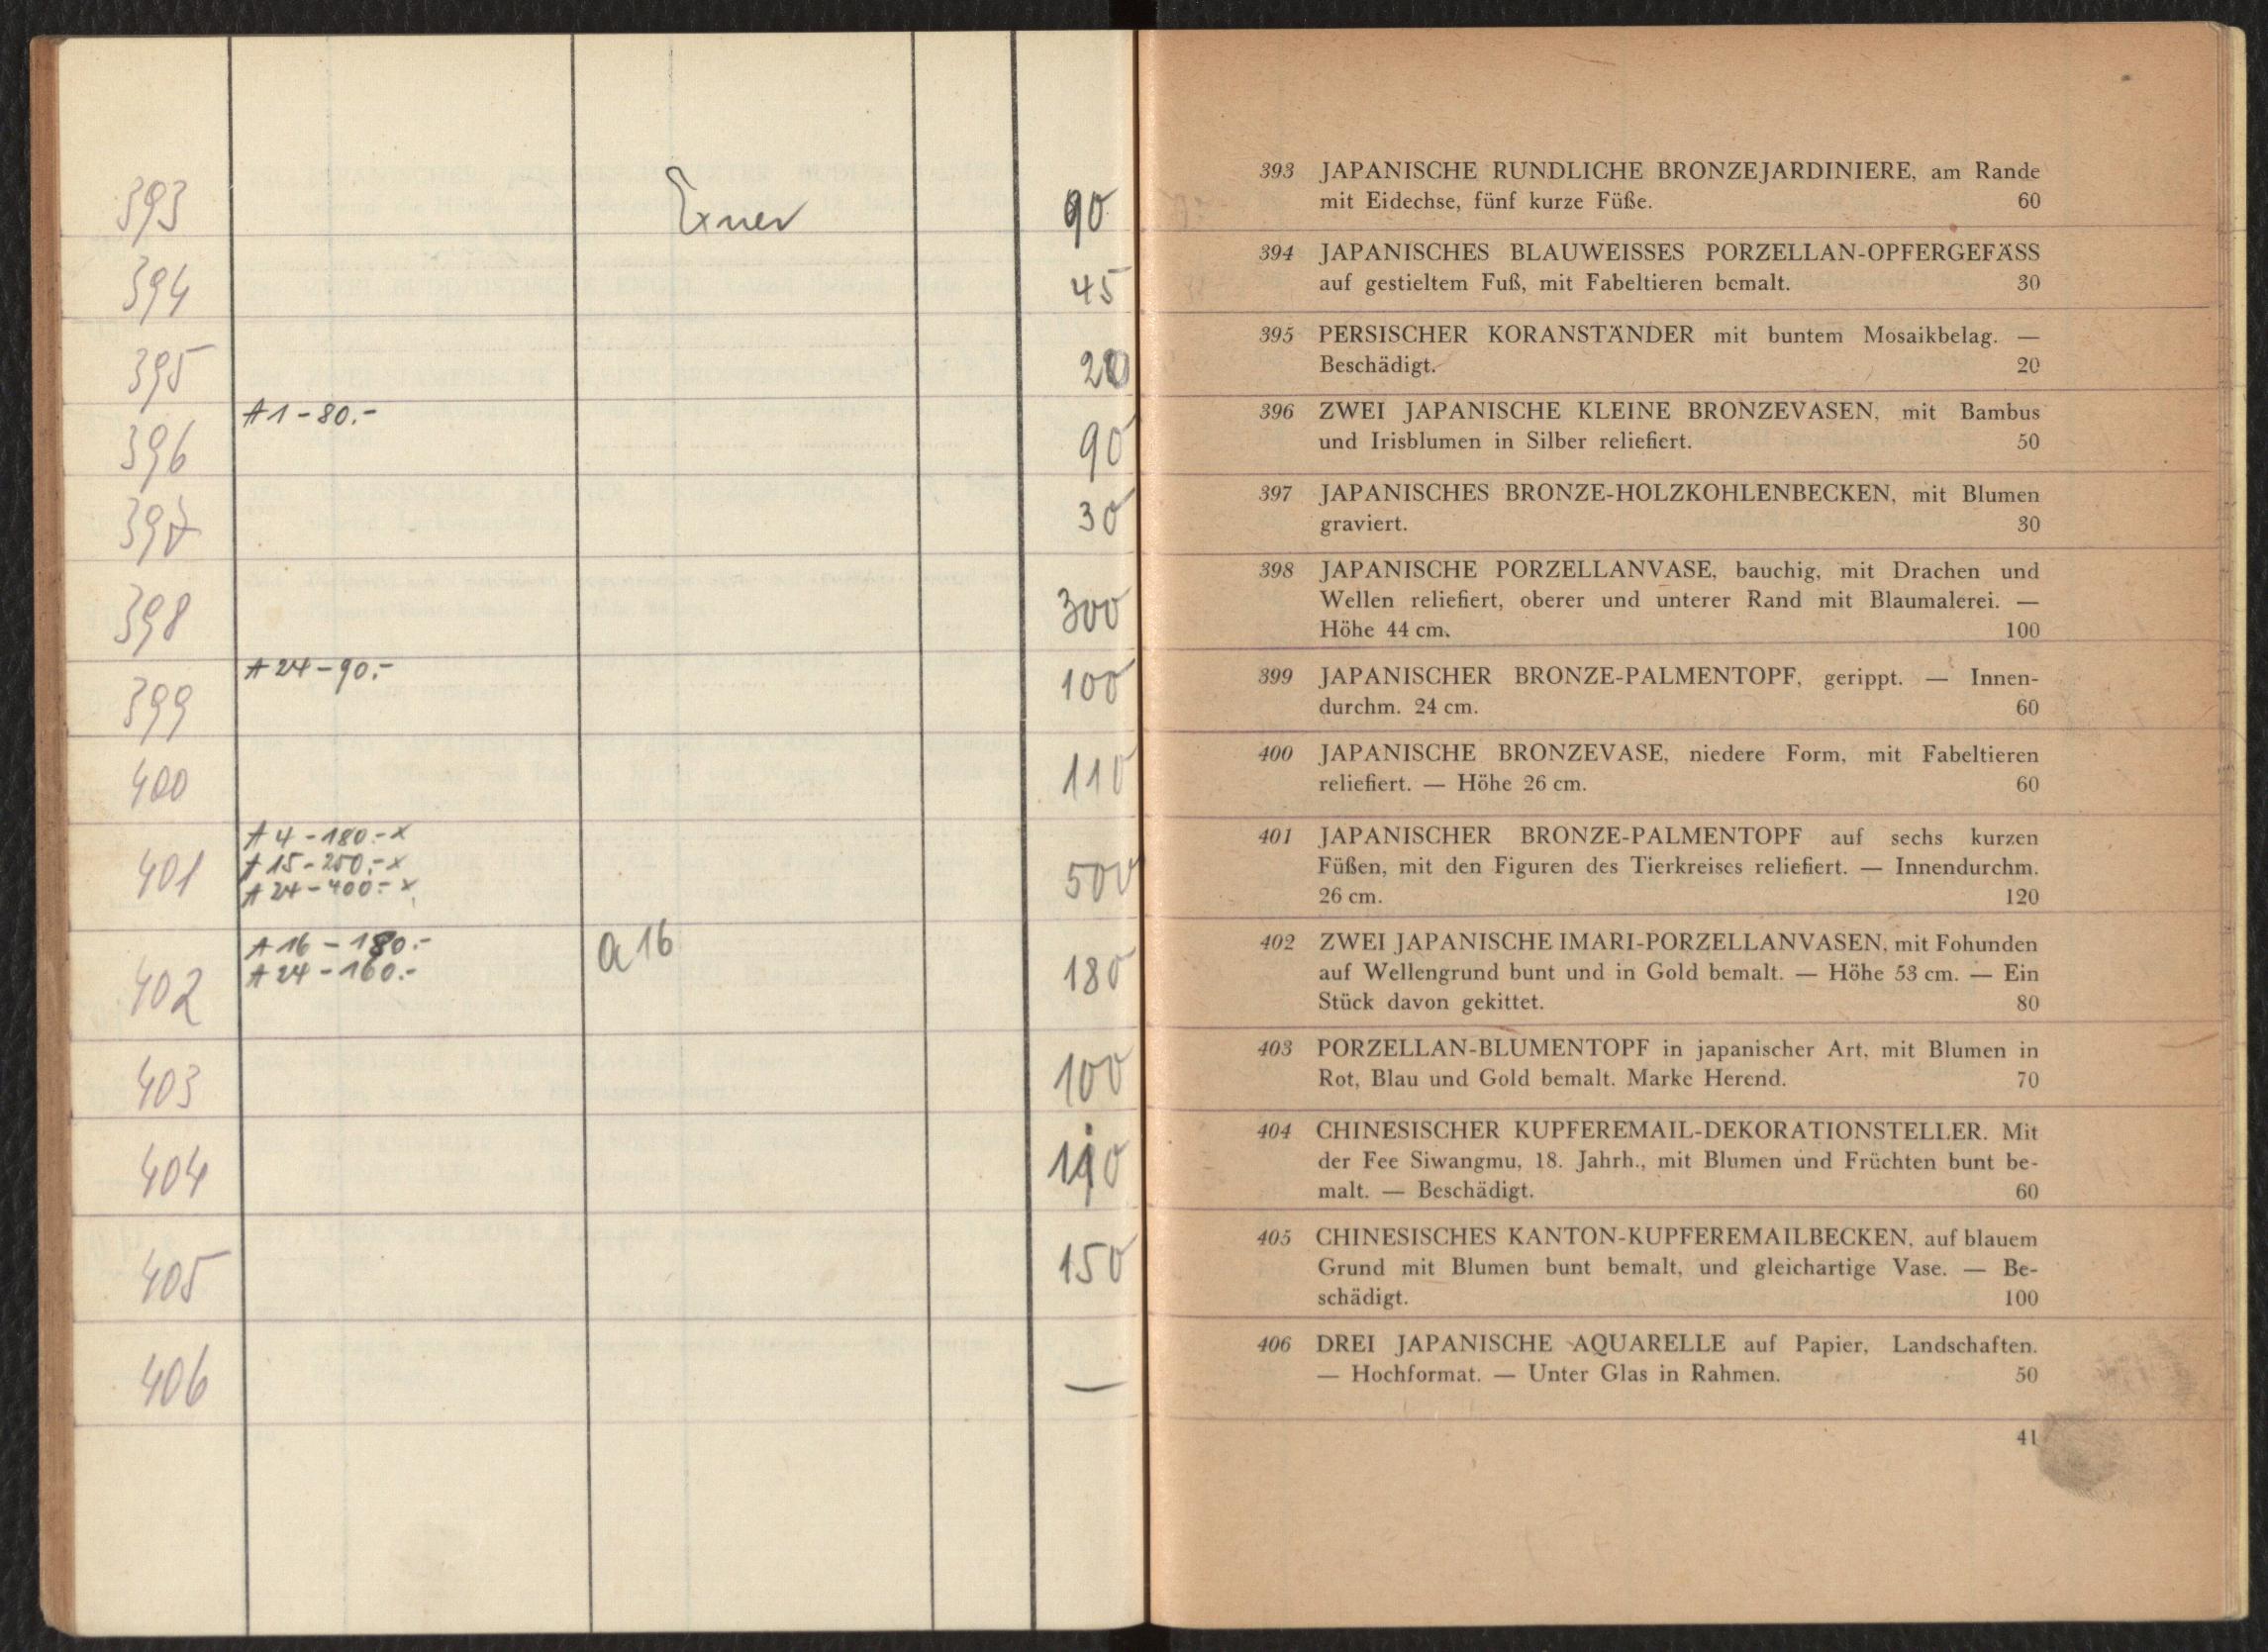 393 Exner 90
394 45
395 20
A 1 - 80.-
396 90
397 30
398 300
A 24 - 90.-
399 100
400 110
A 4 - 180.- x
A 15 - 250.- x
401 500
A 24 - 400.- x
A 16 - 180.- a 16
A 24 - 160.-
402 180
403 100
404 110
405 150
406 —
393 JAPANISCHE RUNDLICHE BRONZEJARDINIERE, am Rande
mit Eidechse, fünf kurze Füße. 60
394 JAPANISCHES BLAUWEISSES PORZELLAN-OPFERGEFÄSS
auf gestieltem Fuß, mit Fabeltieren bemalt. 30
395 PERSISCHER KORANSTÄNDER mit buntem Mosaikbelag. —
Beschädigt. 20
396 ZWEI JAPANISCHE KLEINE BRONZEVASEN, mit Bambus
und Irisblumen in Silber reliefiert. 50
397 JAPANISCHES BRONZE-HOLZKOHLENBECKEN, mit Blumen
graviert. 30
398 JAPANISCHE PORZELLANVASE, bauchig, mit Drachen und
Wellen reliefiert, oberer und unterer Rand mit Blaumalerei. —
Höhe 44 cm. 100
399 JAPANISCHER BRONZE-PALMENTOPF, gerippt. — Innen-
durchm. 24 cm. 60
400 JAPANISCHE BRONZEVASE, niedere Form, mit Fabeltieren
reliefiert. — Höhe 26 cm. 60
401 JAPANISCHER BRONZE-PALMENTOPF auf sechs kurzen
Füßen, mit den Figuren des Tierkreises reliefiert. — Innendurchm.
26 cm. 120
402 ZWEI JAPANISCHE IMARI-PORZELLANVASEN, mit Fohunden
auf Wellengrund bunt und in Gold bemalt. — Höhe 53 cm. — Ein
Stück davon gekittet. 80
403 PORZELLAN-BLUMENTOPF in japanischer Art, mit Blumen in
Rot, Blau und Gold bemalt. Marke Herend. 70
404 CHINESISCHER KUPFEREMAIL-DEKORATIONSTELLER. Mit
der Fee Siwangmu, 18. Jahrh., mit Blumen und Früchten bunt be-
malt. — Beschädigt. 60
405 CHINESISCHES KANTON-KUPFEREMAILBECKEN, auf blauem
Grund mit Blumen bunt bemalt, und gleichartige Vase. — Be-
schädigt. 100
406 DREI JAPANISCHE AQUARELLE auf Papier, Landschaften.
— Hochformat. — Unter Glas in Rahmen. 50
41